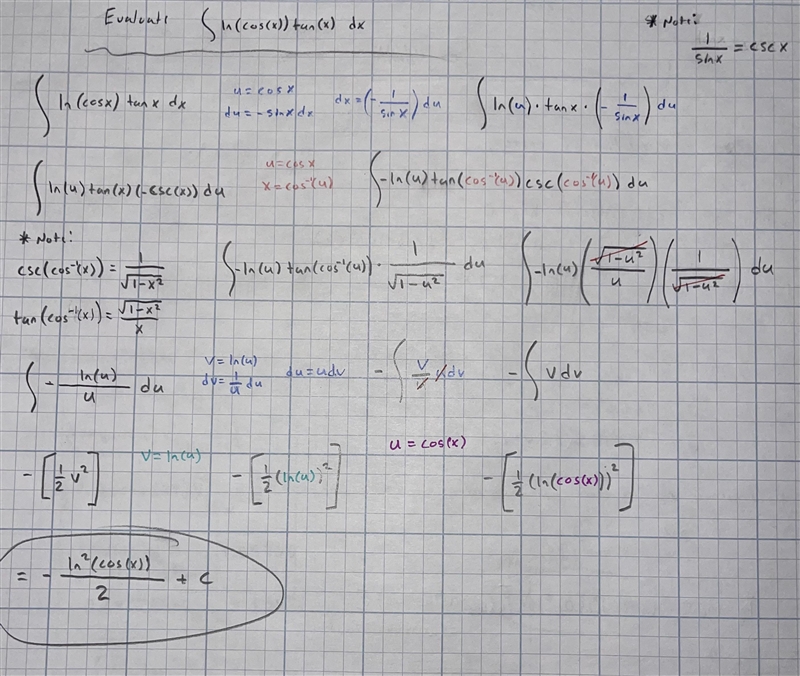 Evaluate ∫ ln(cos(x)) tan(x) dx
* Note:
1/sinx = cscx
∫ ln(cosx) tanx dx   u = cosx   du = -sinx dx   dx = (-1/sinx) du   ∫ ln(u) · tanx · (-1/sinx) du
∫ ln(u) tan(x) (-csc(x)) du   u = cosx   x = cos⁻¹(u)   ∫ -ln(u) tan(cos⁻¹(u)) csc(cos⁻¹(u)) du
* Note:
csc(cos⁻¹(x)) = 1/√(1-x²)
tan(cos⁻¹(x)) = √(1-x²)/x
∫ -ln(u) tan(cos⁻¹(u)) · 1/√(1-u²) du   ∫ -ln(u) (√(1-u²)/u) (1/√(1-u²)) du
∫ - ln(u)/u du   v = ln(u)   dv = 1/u du   du = u dv   - ∫ v/u u dv   - ∫ v dv
- [1/2 v²]   v = ln(u)   - [1/2 (ln(u))²]   u = cos(x)   - [1/2 (ln(cos(x)))²]
= - ln²(cos(x))/2 + C